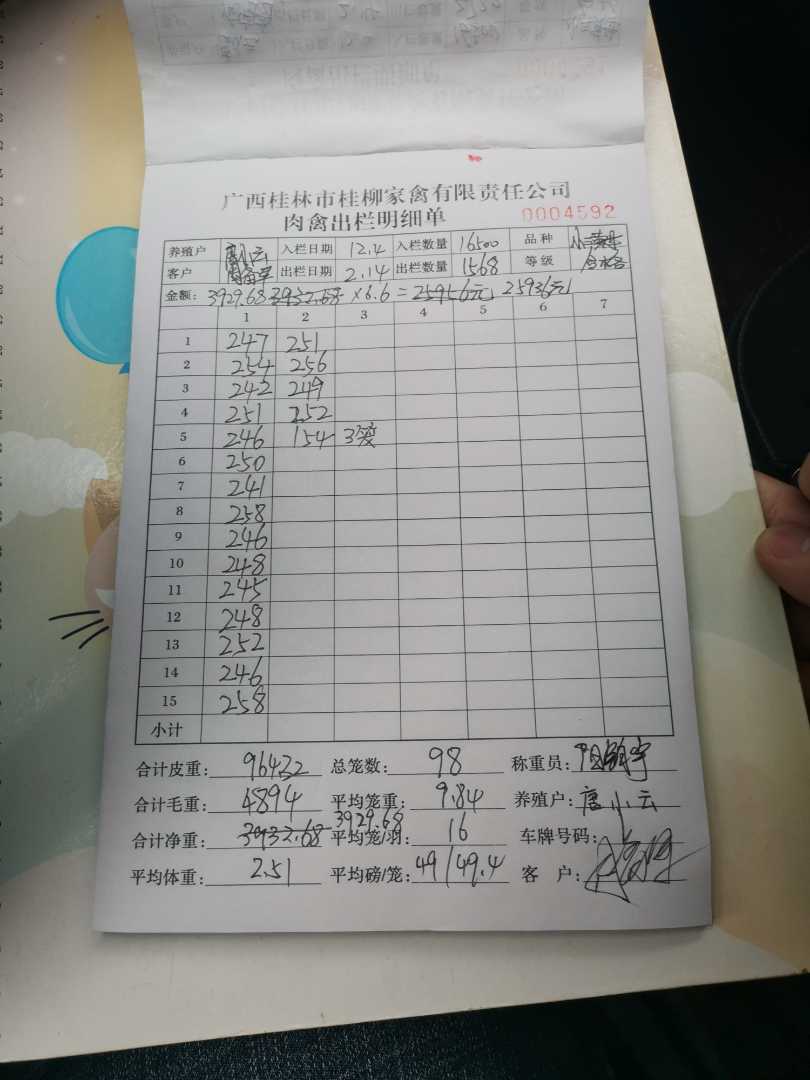 广西桂林市桂柳家禽有限责任公司
肉禽出栏明细单 0004592
养殖户 唐小云 入栏日期 12.4 入栏数量 16500 品种
客户 出栏日期 2.14 出栏数量 1568 等级
金额: 3929.68 3932.68 ×6.6 = 25956元 25936元
1 2 3 4 5 6 7
1 247 251
2 254 256
3 242 249
4 251 252
5 246 154 3
6 250
7 241
8 258
9 246
10 248
11 245
12 248
13 252
14 246
15 258
小计
合计皮重: 964.32 总笼数: 98 称重员:
合计毛重: 4894 平均笼重: 9.84 养殖户: 唐小云
3929.68
合计净重: 3932.68 平均笼/羽: 16 车牌号码:
平均体重: 2.51 平均磅/笼: 49/49.4 客 户: